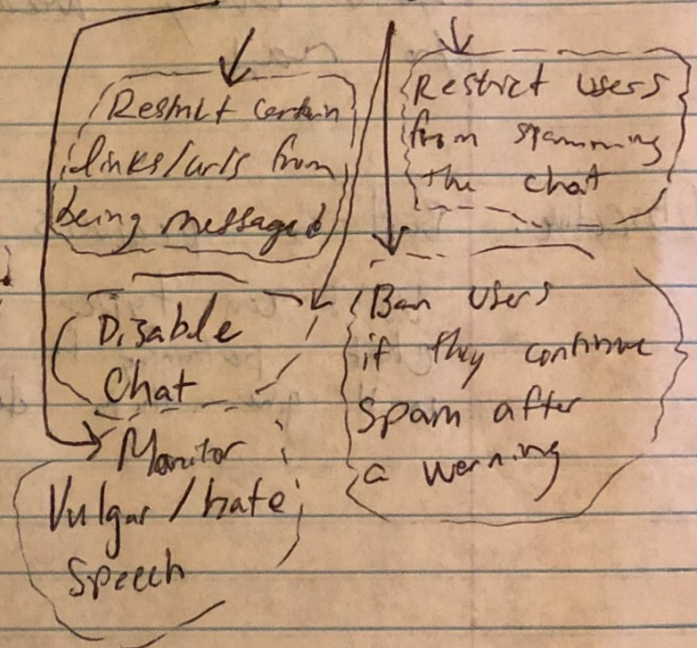 Restrict certain
links/urls from
being messaged
Restrict users
from spamming
the chat
Disable
Chat
Ban users
if they continue
spam after
a warning
Monitor
Vulgar/hate
Speech